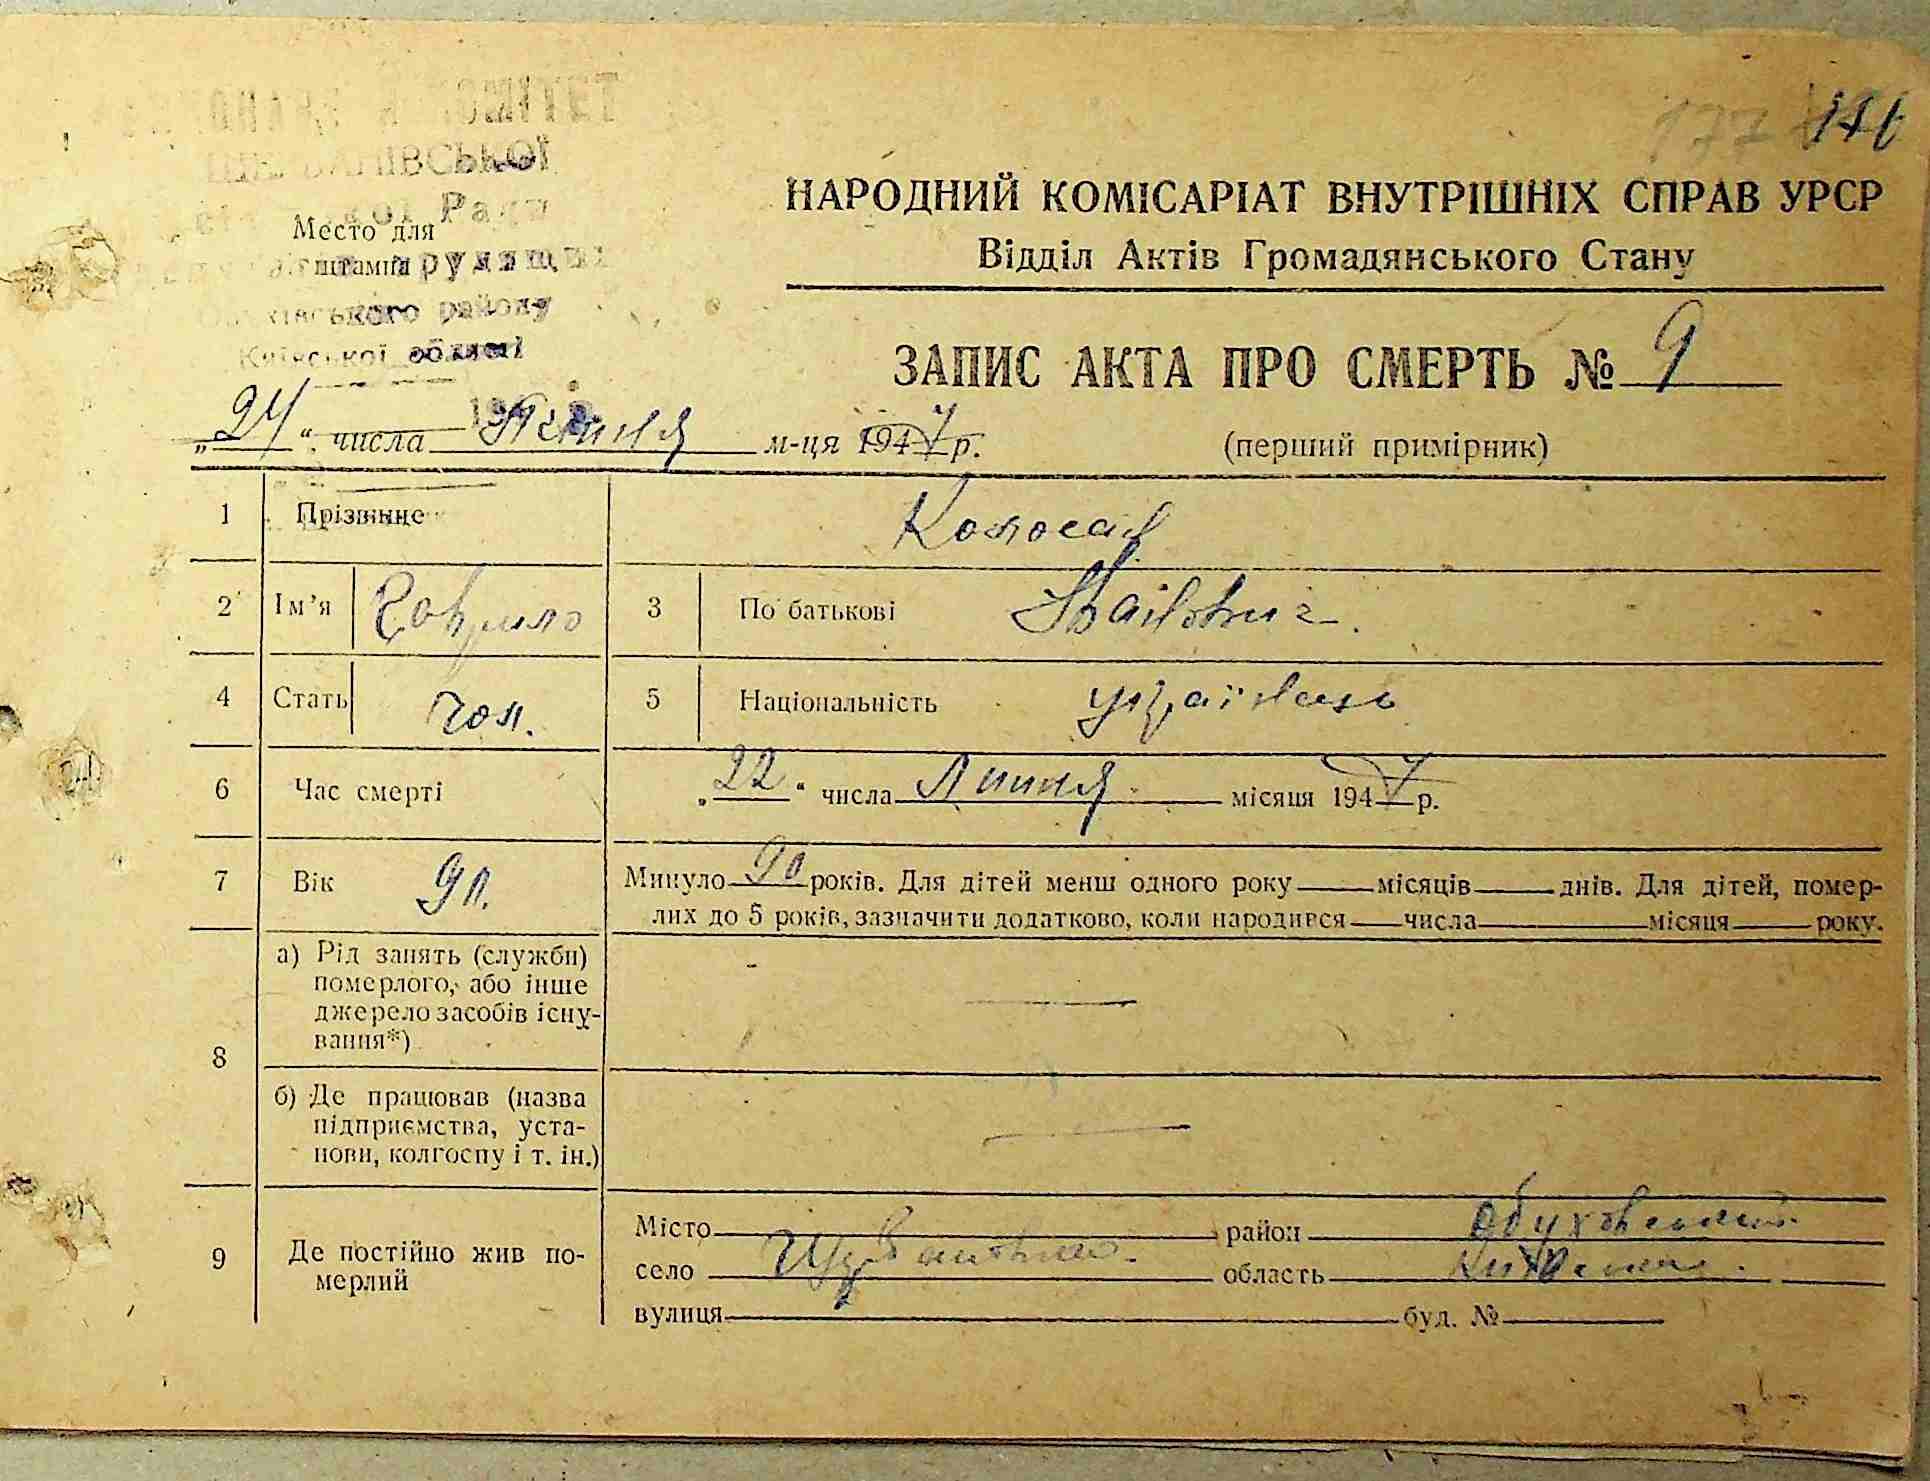 177
НАРОДНИЙ КОМІСАРІАТ ВНУТРІШНІХ СПРАВ УРСР
Відділ Актів Громадянського Стану
Ради
Место для
штампа трудящих
району
Київської області
ЗАПИС АКТА ПРО СМЕРТЬ № 9
„24“ числа Липня м-ця 1947 р.
(перший примірник)
1 Прізвище
2 Ім’я Гаврило 3 По батькові
4 Стать чол. 5 Національність українець
6 Час смерті „22“ числа Липня місяця 1947 р.
7 Вік 90. Минуло 90 років. Для дітей менш одного року місяців днів. Для дітей, помер-
лих до 5 років, зазначити додатково, коли народився числа місяця року.
8 а) Рід занять (служби)
померлого, або інше
джерело засобів існу-
вання*)
б) Де працював (назва
підприємства, уста-
нови, колгоспу і т. ін.)
9 Де постійно жив по-
мерлий
Місто район Обуховский
село область
вулиця буд. №